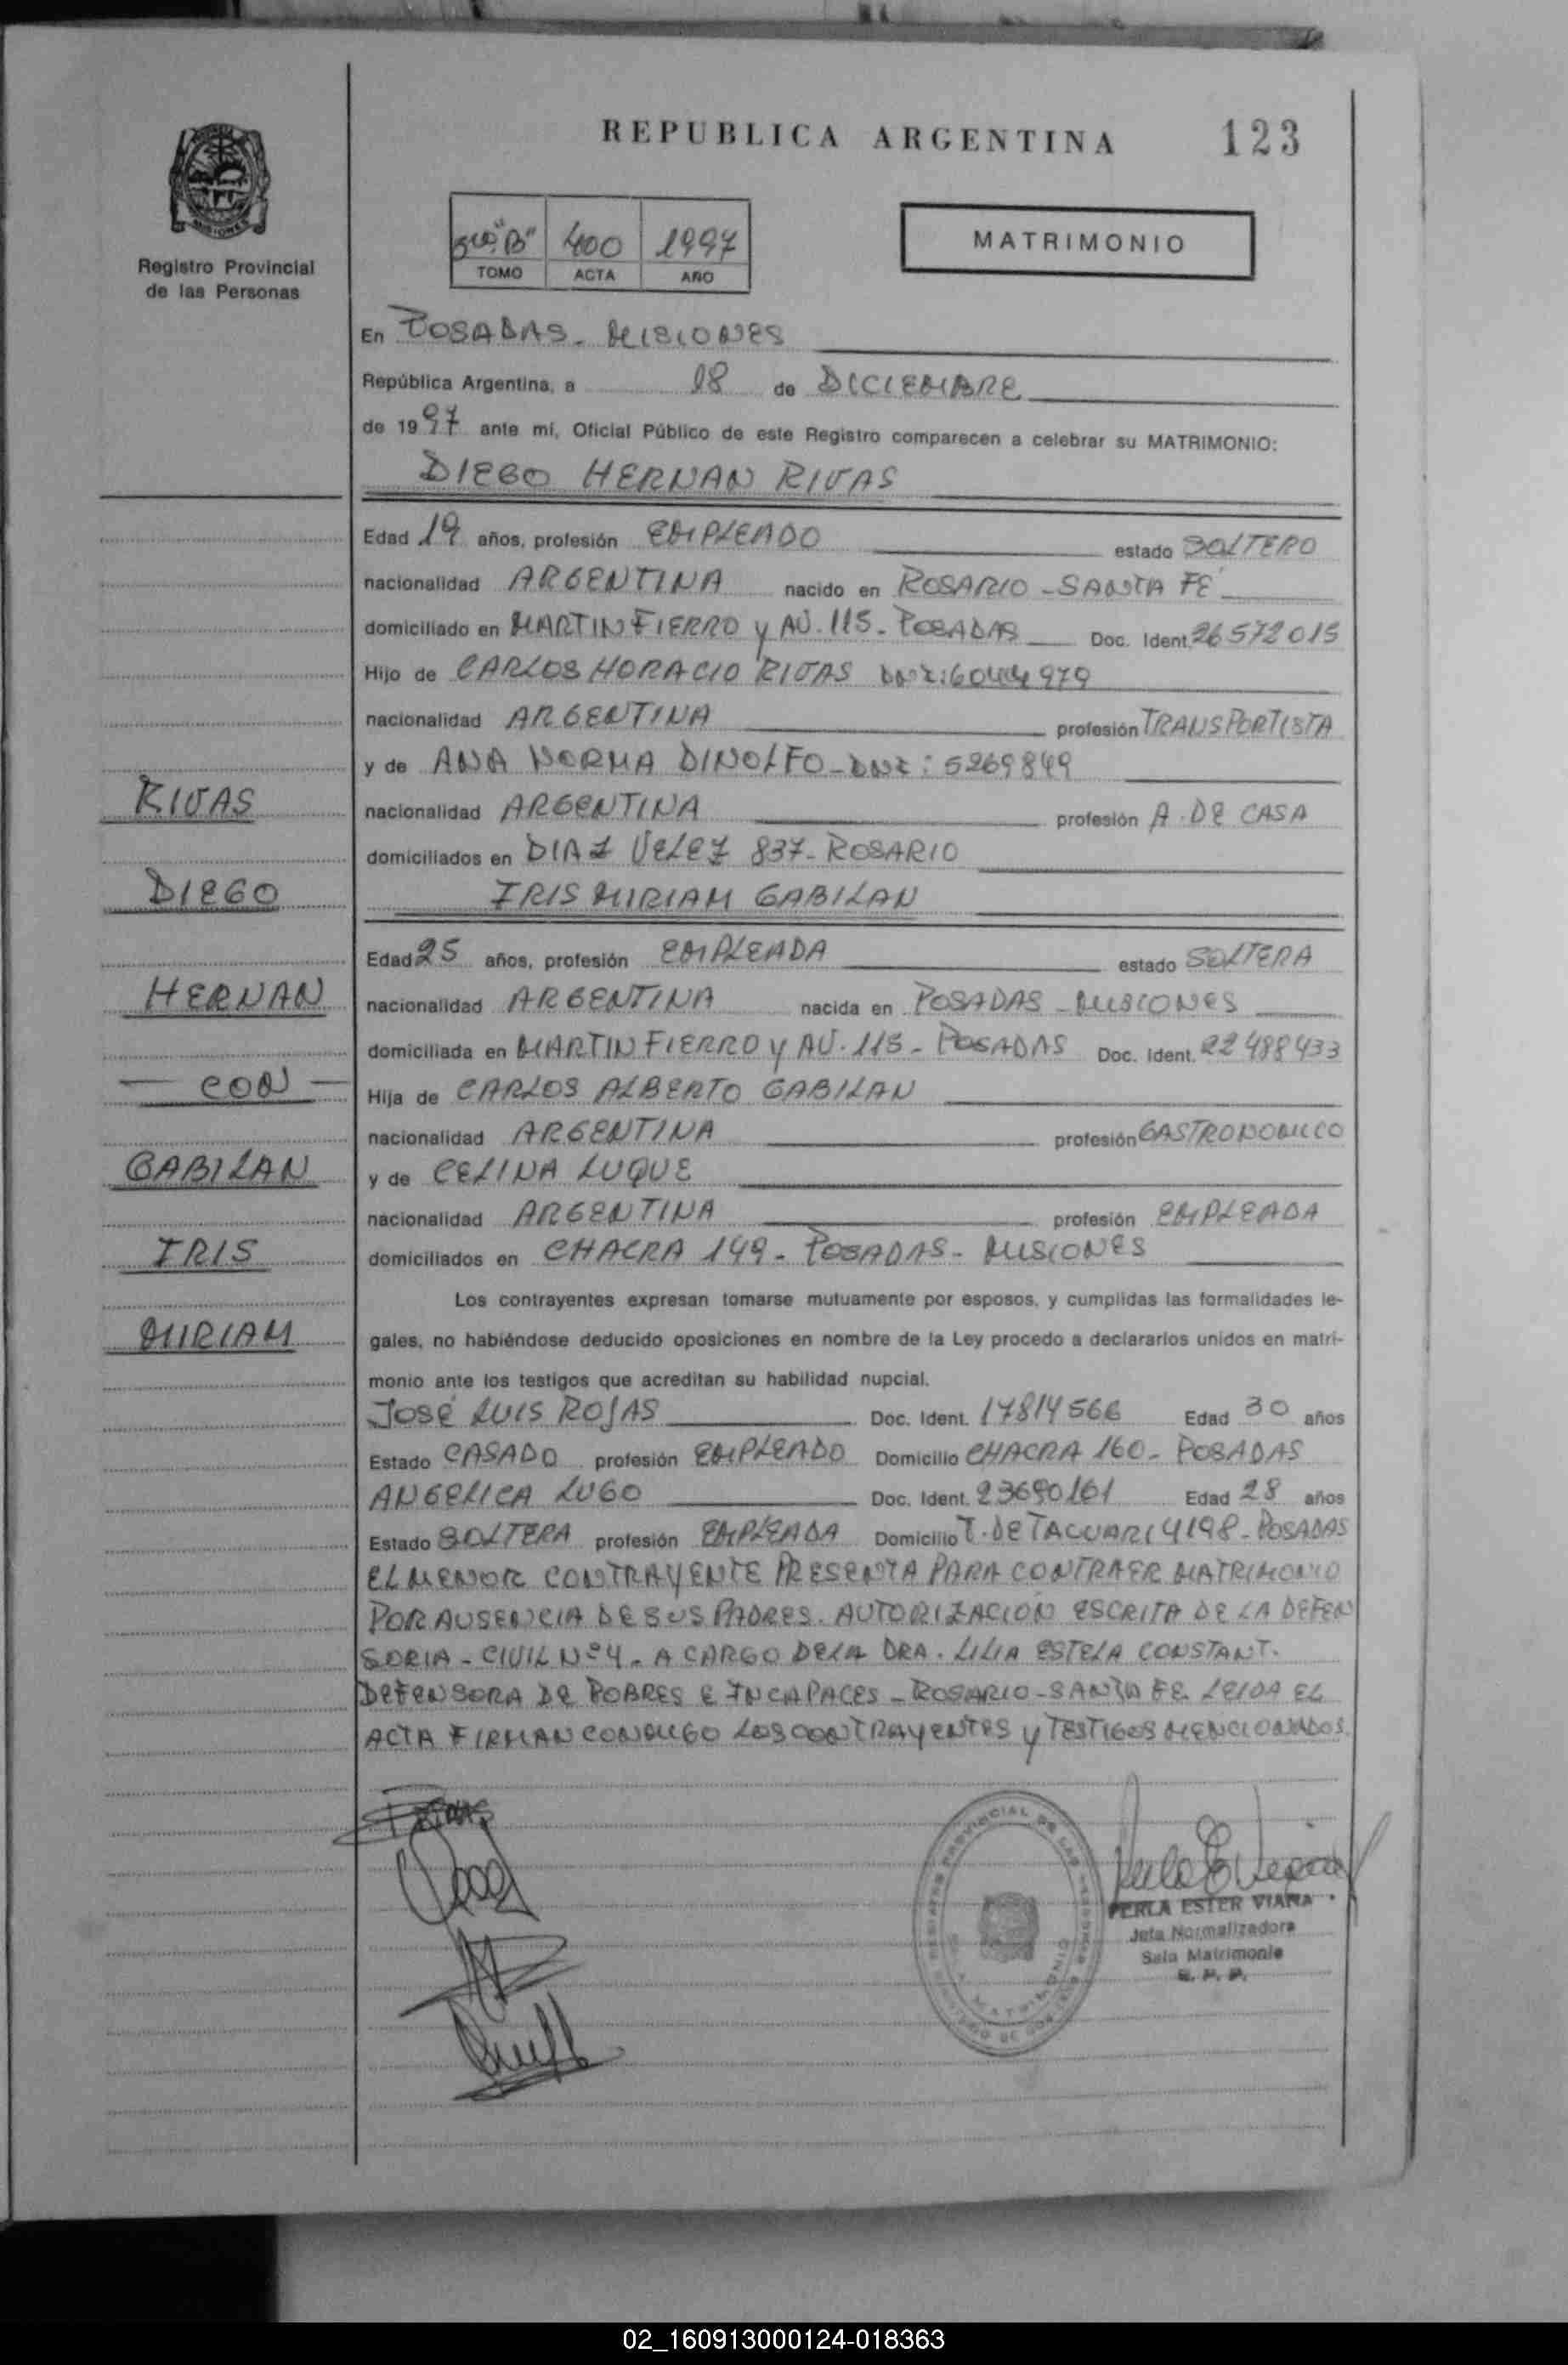 REPUBLICA ARGENTINA 123
MISIONES
Registro Provincial
de las Personas
"B" 400 1997
TOMO ACTA AÑO
MATRIMONIO
En POSADAS - MISIONES
República Argentina, a 18 de DICIEMBRE
de 1997 ante mí, Oficial Público de este Registro comparecen a celebrar su MATRIMONIO:
DIEGO HERNAN RIVAS
Edad 19 años, profesión EMPLEADO estado SOLTERO
nacionalidad ARGENTINA nacido en ROSARIO - SANTA FÉ
domiciliado en MARTIN FIERRO y AV. 115 - POSADAS Doc. Ident. 26572015
Hijo de CARLOS HORACIO RIVAS DNI: 6044979
nacionalidad ARGENTINA profesión TRANSPORTISTA
y de ANA NORMA DINOLFO - DNI: 5269849
nacionalidad ARGENTINA profesión A. DE CASA
domiciliados en DIAZ VELEZ 837 - ROSARIO
IRIS MIRIAM GABILAN
Edad 25 años, profesión EMPLEADA estado SOLTERA
nacionalidad ARGENTINA nacida en POSADAS - MISIONES
domiciliada en MARTIN FIERRO y AV. 115 - POSADAS Doc. Ident. 22488433
Hija de CARLOS ALBERTO GABILAN
nacionalidad ARGENTINA profesión GASTRONOMICO
y de CELINA LUQUE
nacionalidad ARGENTINA profesión EMPLEADA
domiciliados en CHACRA 149 - POSADAS - MISIONES
RIVAS
DIEGO
HERNAN
- CON -
GABILAN
IRIS
MIRIAM
Los contrayentes expresan tomarse mutuamente por esposos, y cumplidas las formalidades le-
gales, no habiéndose deducido oposiciones en nombre de la Ley procedo a declararlos unidos en matri-
monio ante los testigos que acreditan su habilidad nupcial.
JOSÉ LUIS ROJAS Doc. Ident. 17814566 Edad 30 años
Estado CASADO profesión EMPLEADO Domicilio CHACRA 160 - POSADAS
ANGELICA LUGO Doc. Ident. 23690161 Edad 28 años
Estado SOLTERA profesión EMPLEADA Domicilio T. DE TACUARI 4198 - POSADAS
EL MENOR CONTRAYENTE PRESENTA PARA CONTRAER MATRIMONIO
POR AUSENCIA DE SUS PADRES. AUTORIZACIÓN ESCRITA DE LA DEFEN
SORIA - CIVIL Nº 4 - A CARGO DE LA DRA. LILIA ESTELA CONSTANT.
DEFENSORA DE POBRES E INCAPACES - ROSARIO - SANTA FE. LEIDA EL
ACTA FIRMAN CONMIGO LOS CONTRAYENTES y TESTIGOS MENCIONADOS.
PERLA ESTER VIANA
Jefa Normalizadora
Sala Matrimonio
R. P. P.
02_160913000124-018363